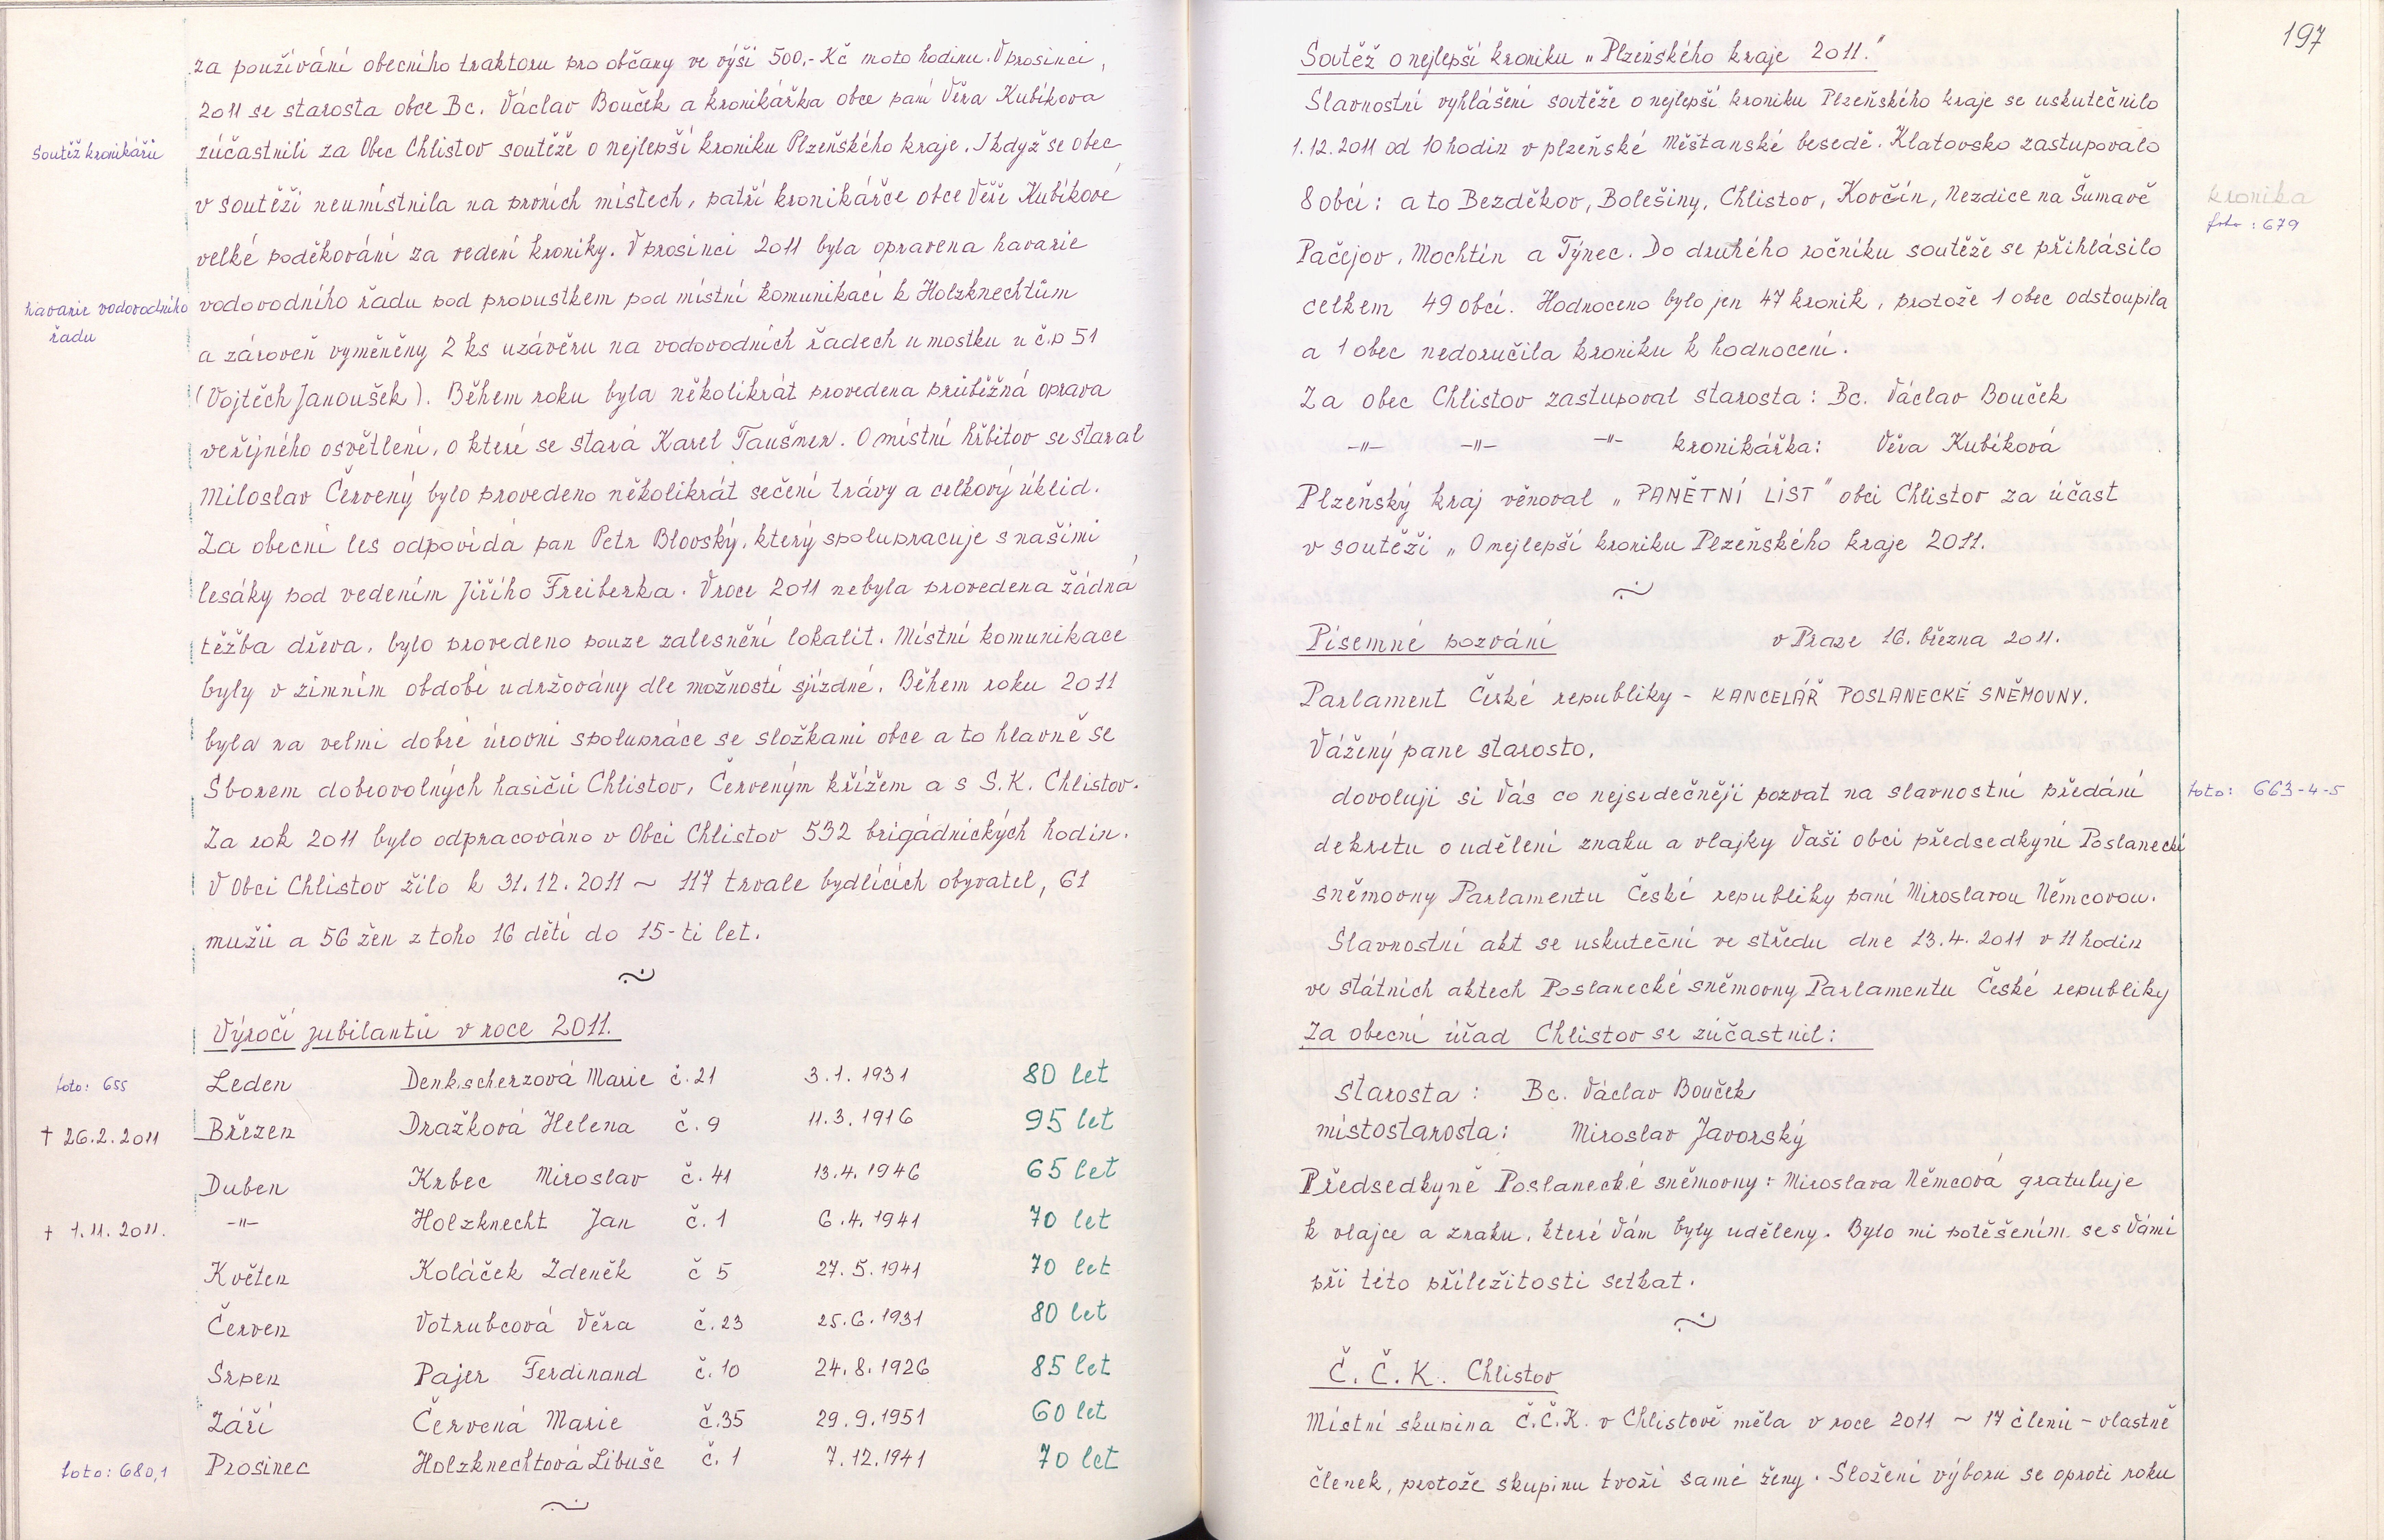 za používání obecního traktoru pro občany ve výši 500,- Kč moto hodinu. V prosinci,
2011 se starosta obce Bc. Václav Bouček a kronikářka obce paní Věra Kubíkova
Soutěž kronikářů
zúčastnili za Obec Chlistov soutěže o nejlepší kroniku Plzeňského kraje. I když se obec
v soutěži neumístnila na prvních místech, patří kronikářce obce Věře Kubíkové
velké poděkování za vedení kroniky. V prosinci 2011 byla opravena havarie
havarie vodovodního
řadu
vodovodního řadu pod propustkem pod místní komunikací k Holzknechtům
a zároveň vyměněny 2 ks uzávěru na vodovodních řadech u mostku u č.p 51
(Vojtěch Janoušek). Během roku byla několikrát provedena průběžná oprava
veřejného osvětlení, o které se stará Karel Taušner. O místní hřbitov se staral
Miloslav Červený bylo provedeno několikrát sečení trávy a celkový úklid.
Za obecní les odpovídá pan Petr Blovský, který spolupracuje s našimi
lesáky pod vedením Jiřího Freiberka. V roce 2011 nebyla provedena žádná
těžba dřeva, bylo provedeno pouze zalesnění lokalit. Místní komunikace
byly v zimním období udržovány dle možností sjízdné. Během roku 2011
byla na velmi dobré úrovni spolupráce se složkami obce a to hlavně se
Sborem dobrovolných hasičů Chlistov, Červeným křížem a s S.K. Chlistov.
Za rok 2011 bylo odpracováno v Obci Chlistov 532 brigádnických hodin.
V Obci Chlistov žilo k 31.12.2011 ~ 117 trvale bydlících obyvatel, 61
mužů a 56 žen z toho 16 dětí do 15-ti let.
Výročí jubilantů v roce 2011.
foto: 655 Leden Denkscherzová Marie č.21 3.1.1931 80 let
† 26.2.2011 Březen Dražková Helena č.9 11.3.1916 95 let
Duben Krbec Miroslav č.41 13.4.1946 65 let
† 1.11.2011. -"- Holzknecht Jan č.1 6.4.1941 70 let
Květen Koláček Zdeněk č 5 27.5.1941 70 let
Červen Votrubcová Věra č.23 25.6.1931 80 let
Srpen Pajer Ferdinand č.10 24.8.1926 85 let
Září Červená Marie č.35 29.9.1951 60 let
foto: 680,1 Prosinec Holzknechtová Libuše č.1 7.12.1941 70 let
197
Soutěž o nejlepší kroniku „Plzeňského kraje 2011."
Slavnostní vyhlášení soutěže o nejlepší kroniku Plzeňského kraje se uskutečnilo
1.12.2011 od 10 hodin v plzeňské Měštanské besedě. Klatovsko zastupovalo
8 obcí: a to Bezděkov, Bolešiny, Chlistov, Kovčín, Nezdice na Šumavě
kronika
foto: 679
Pačejov, Mochtín a Týnec. Do druhého ročníku soutěže se přihlásilo
celkem 49 obcí. Hodnoceno bylo jen 47 kronik, protože 1 obec odstoupila
a 1 obec nedoručila kroniku k hodnocení.
Za obec Chlistov zastupoval starosta: Bc. Václav Bouček
-"- -"- -"- kronikářka: Věra Kubíková
Plzeňský kraj věnoval „PAMĚTNÍ LIST" obci Chlistov za účast
v soutěži „O nejlepší kroniku Plzeňského kraje 2011.
Písemné pozvání v Praze 16. března 2011.
Parlament České republiky - KANCELÁŘ POSLANECKÉ SNĚMOVNY.
Vážený pane starosto,
dovoluji si Vás co nejsrdečněji pozvat na slavnostní předání
foto: 663-4-5
dekretu o udělení znaku a vlajky Vaší obci předsedkyní Poslanecké
sněmovny Parlamentu České republiky paní Miroslavou Němcovou.
Slavnostní akt se uskuteční ve středu dne 13.4.2011 v 11 hodin
ve státních aktech Poslanecké sněmovny Parlamentu České republiky
Za obecní úřad Chlistov se zúčastnil:
starosta: Bc. Václav Bouček
místostarosta: Miroslav Javorský
Předsedkyně Poslanecké sněmovny: Miroslava Němcová gratuluje
k vlajce a znaku, které Vám byly uděleny. Bylo mi potěšením se s Vámi
při této příležitosti setkat.
Č.Č.K. Chlistov
Místní skupina Č.Č.K. v Chlistově měla v roce 2011 ~ 17 členů - vlastně
členek, protože skupinu tvoří samé ženy. Složení výboru se oproti roku